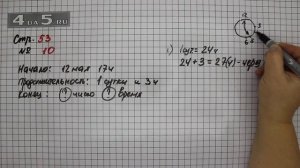 4дa5.ru
Стр. 53
№ 10
Начало: 12 мая 17ч
Продолжительность: 1 сутки и 3ч
Конец: ! число ! время
1) 1сут = 24ч
24 + 3 = 27(ч) - через
12
3
6